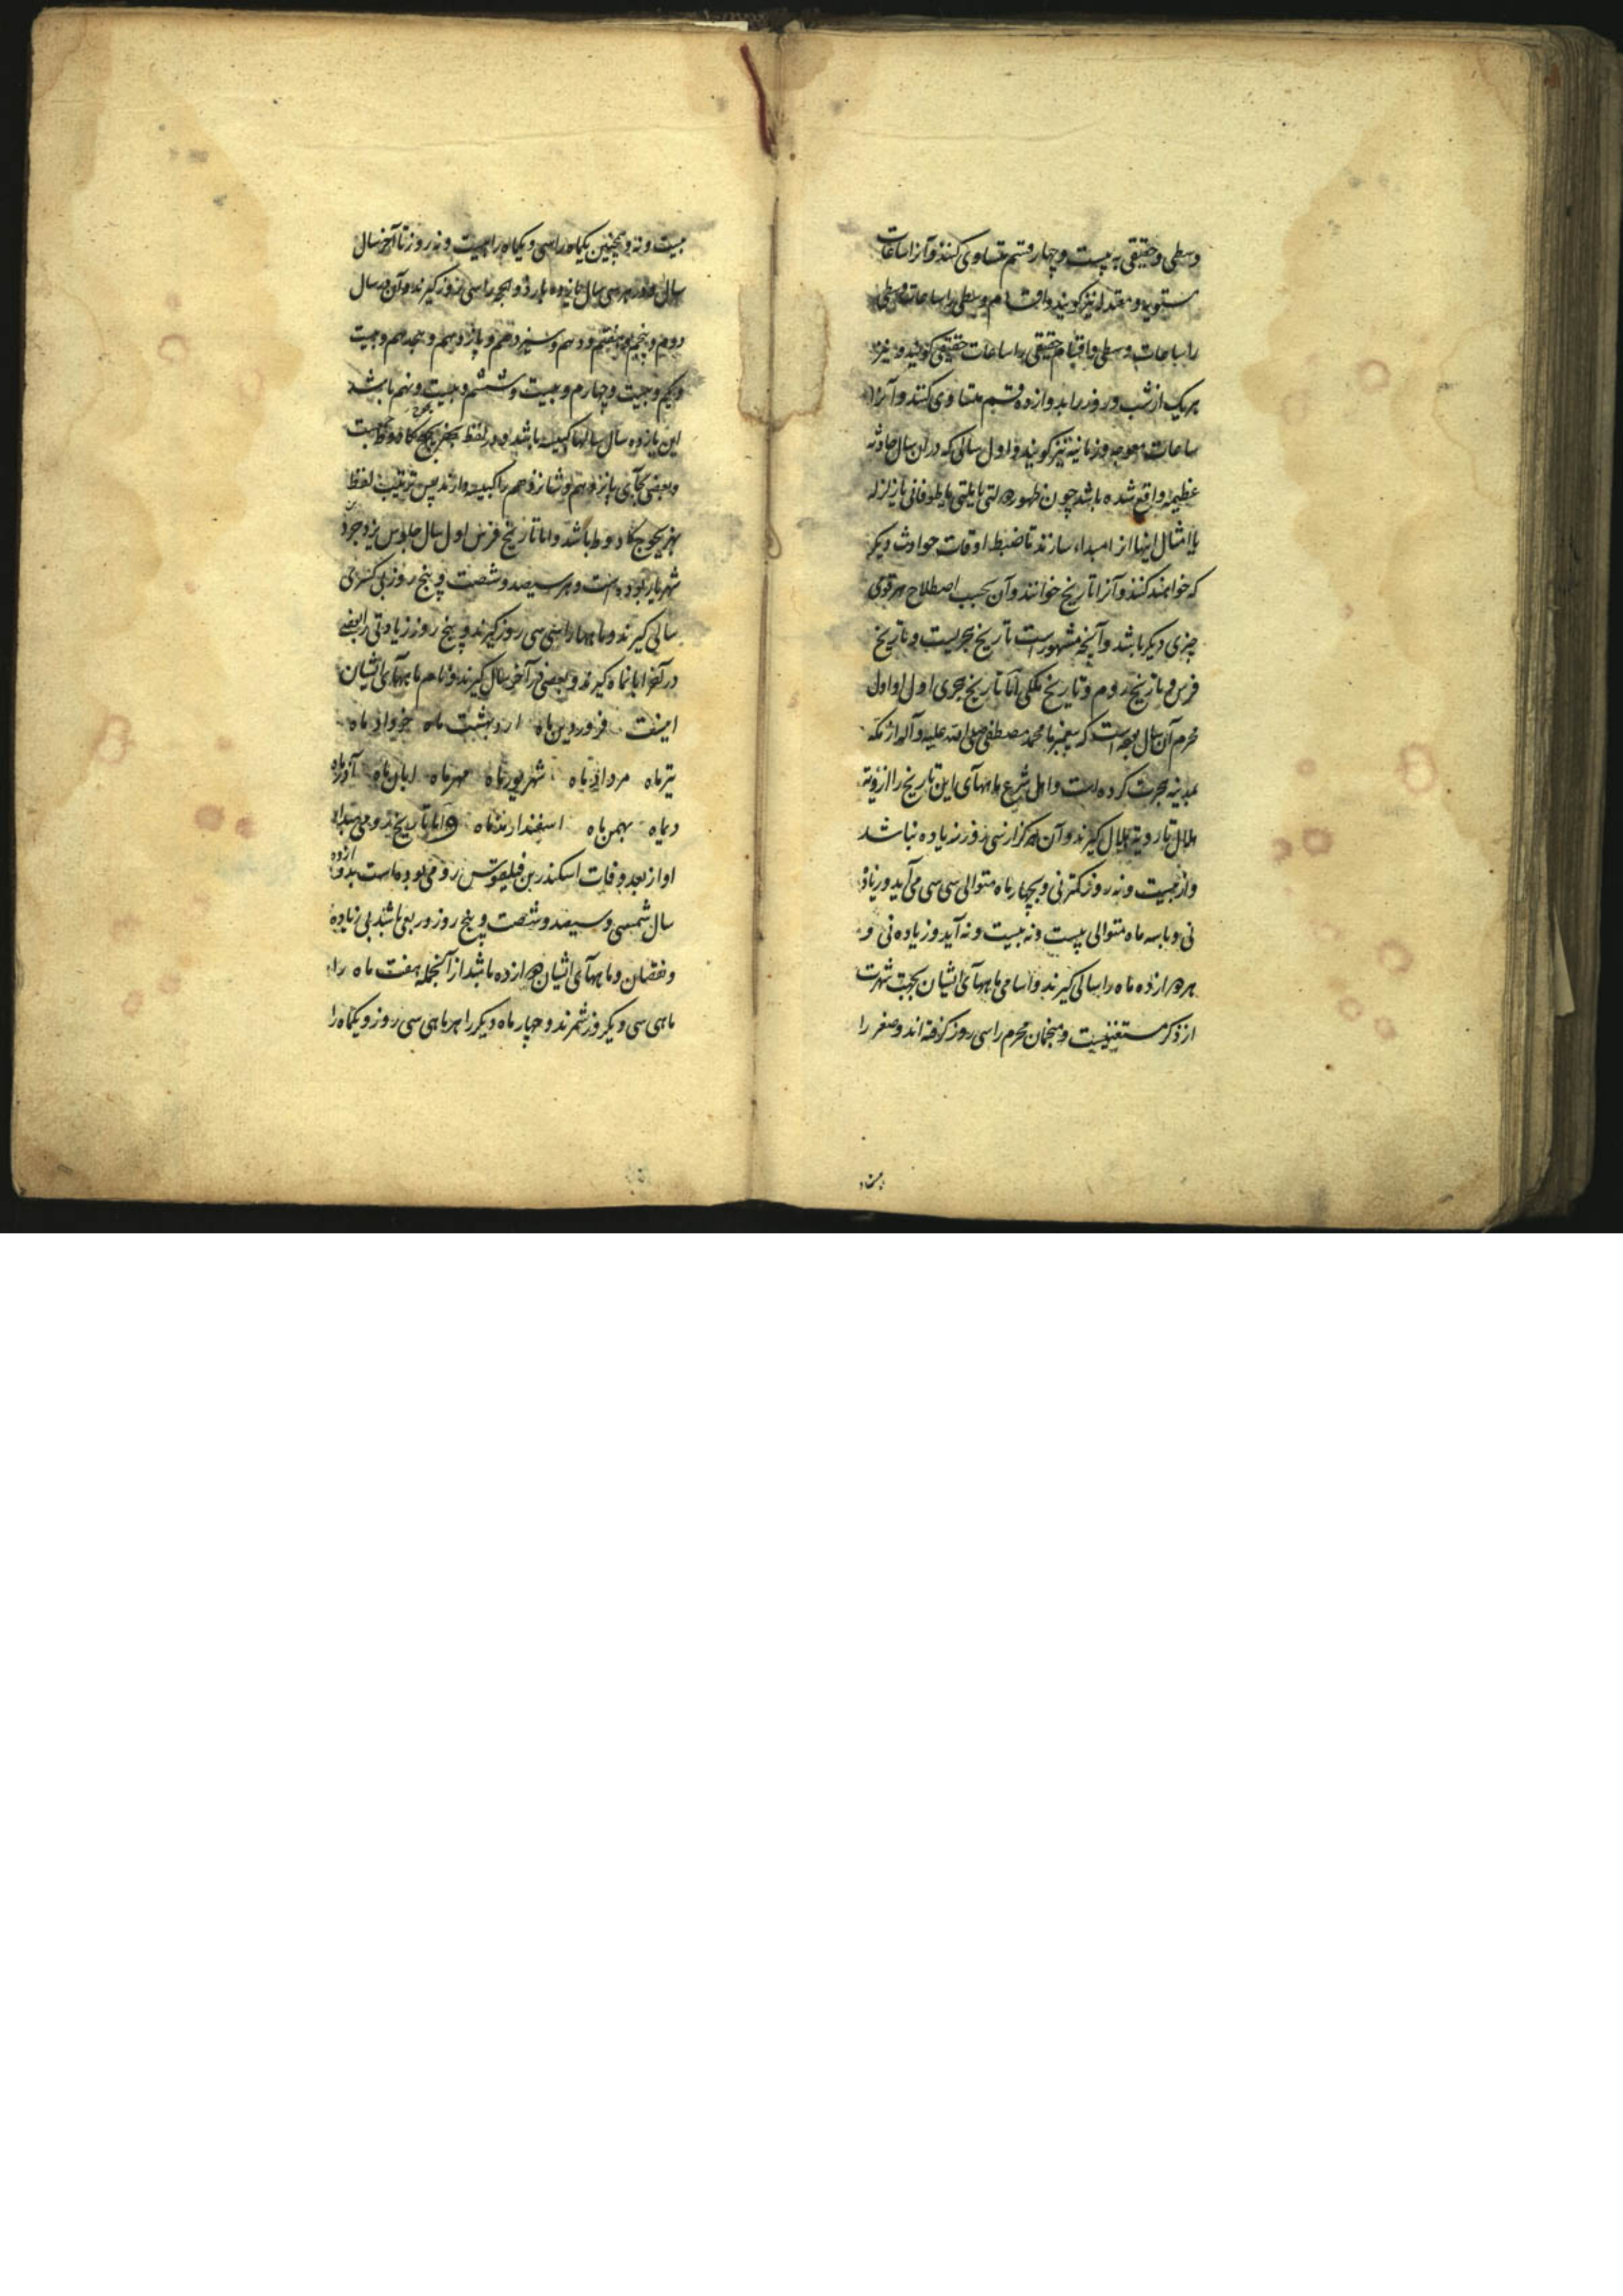 وسطی و حقیقی به بیست و چهار قسم متساوی کنند و آنرا ساعات
مستویه و معتدله نیز گویند و اقسام وسطی را ساعات وسطی
را ساعات وسطی و اقسام حقیقی را ساعات حقیقی گویند و نیز
هریک از شب و روز را بدوازده قسم متساوی کنند و آنرا
ساعات معوجه و زمانیه نیز گویند و اول سالی که در ان سال حادثه
عظیمه واقع شده باشد چون ظهور دولتی یا ملتی یا طوفانی یا زلزله
یا امثال اینها انرا مبداء سازند تا ضبط اوقات حوادث دیگر
که خواهند کنند و آنرا تاریخ خوانند و آن بحسب اصطلاح هر قومی
چیزی دیگر باشد و آنچه مشهور است تاریخ هجریست و تاریخ
فرس و تاریخ روم و تاریخ ملکی اما تاریخ هجری اول او اول
محرم آن سال بوده است که پیغمبر ما محمد مصطفی صلی الله علیه و آله از مکه
بمدینه هجرت کرده است و اهل شرع ماههآی این تاریخ را از رؤیة
هلال تا رویة هلال گیرند و آن هرگز از سی روز زیاده نباشد
و از بیست و نه روز کمتر نی و چهار ماه متوالی سی سی می آید و زیاده
نی و تا سه ماه متوالی بیست و نه بیست و نه آید و زیاده نی و
هر دوازده ماه را سالی گیرند و اسامی ماههآی ایشان بجهت شهرت
از ذکر مستغنیست و منجمان محرم را سی روز گرفته اند و صفر را
بیست و نه و همچنین یکماه را سی و یکماه را بیست و نه روز تا آخر سال
سال و در هر سی سال یازده بار ذو الحجه را سی روز گیرند و آن در سال
دوم و پنجم و هفتم و دهم و سیزدهم و پانزدهم و هجدهم و بیست
و یکم و بیست و چهارم و بیست و ششم و بیست و نهم باشد
این یازده سال سالها کبیسه باشد و در لفظ
و بعضی بجآی پانزدهم و شانزدهم را کبیسه دارند پس ترتیب لفظ
بهزیجوج کادوط باشد و اما تاریخ فرس اول سال جلوس یزدجرد
شهریار بوده است و هر سیصد و شصت و پنج روز بی کسری
سالی گیرند و ماهها را سی سی روز گیرند و پنج روز زیادتی را بعضی
در آخر ابانماه گیرند و بعضی در آخر سال گیرند و نام ماههآی ایشان
اینست فروردین ماه اردبهشت ماه خرداد ماه
تیر ماه مرداد ماه شهریور ماه مهر ماه ابان ماه آذر ماه
دیماه بهمن ماه اسفندارمذ ماه و اما تاریخ رومی مبداء
او از بعد وفات اسکندر بن فیلقوس رومی بوده است بدوازده
سال شمسی و سیصد و شصت و پنج روز و ربعی باشد بی زیاده
و نقصان و ماههآی ایشان دوازده باشد از آنجمله هفت ماه را
ماهی سی و یکروز شمرند و چهار ماه دیگر را هر ماهی سی روز و یکماه را